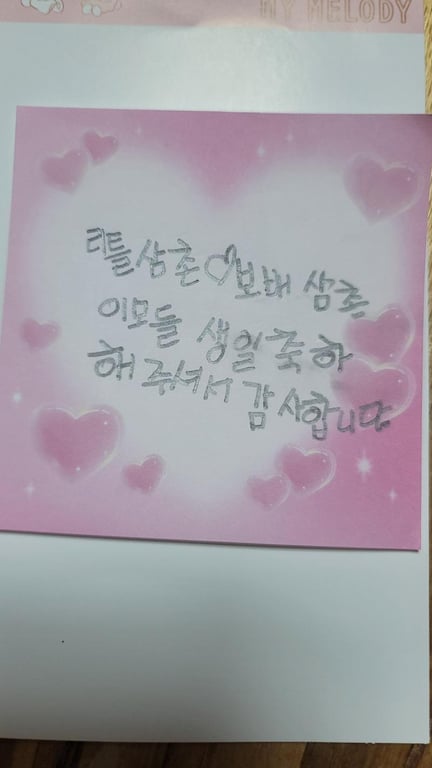 MY MELODY
티틀삼촌♡보배 삼촌
이모들 생일 축하
해 주셔서 감사합니다